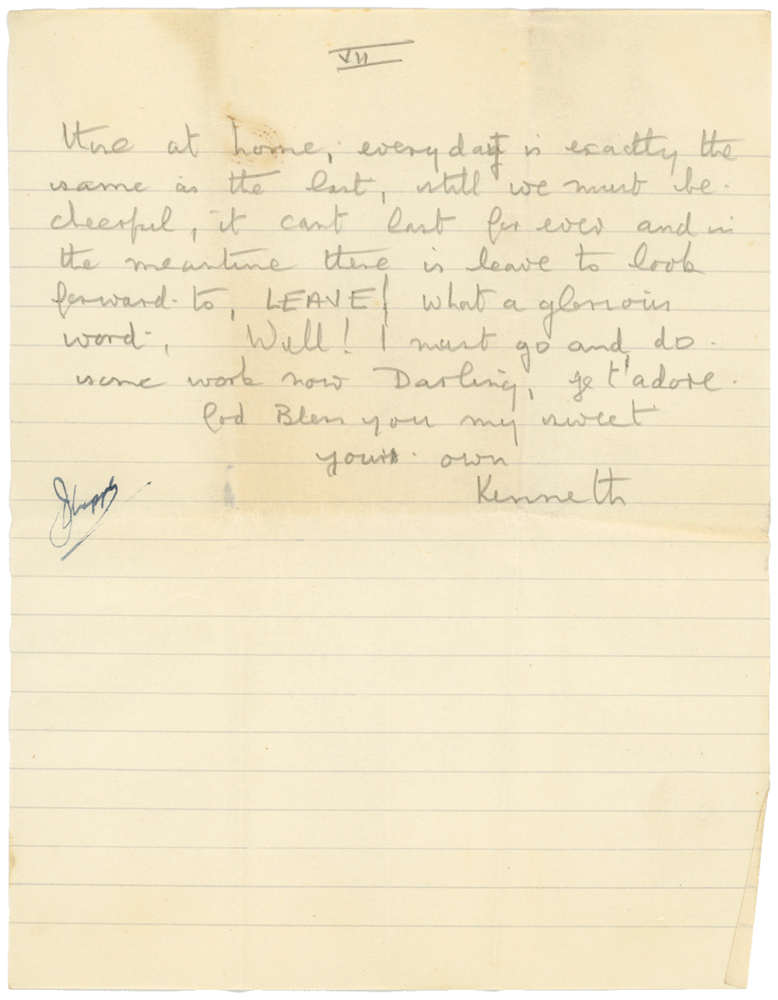 VII
at home, everyday is exactly the
same as the last, still we must be
cheerful, it cant last for ever and in
the meantime there is leave to look
forward to, LEAVE! what a glorious
word, Well! I must go and do
some work now Darling, je t'adore.
God Bless you my sweet
yours own
Kenneth